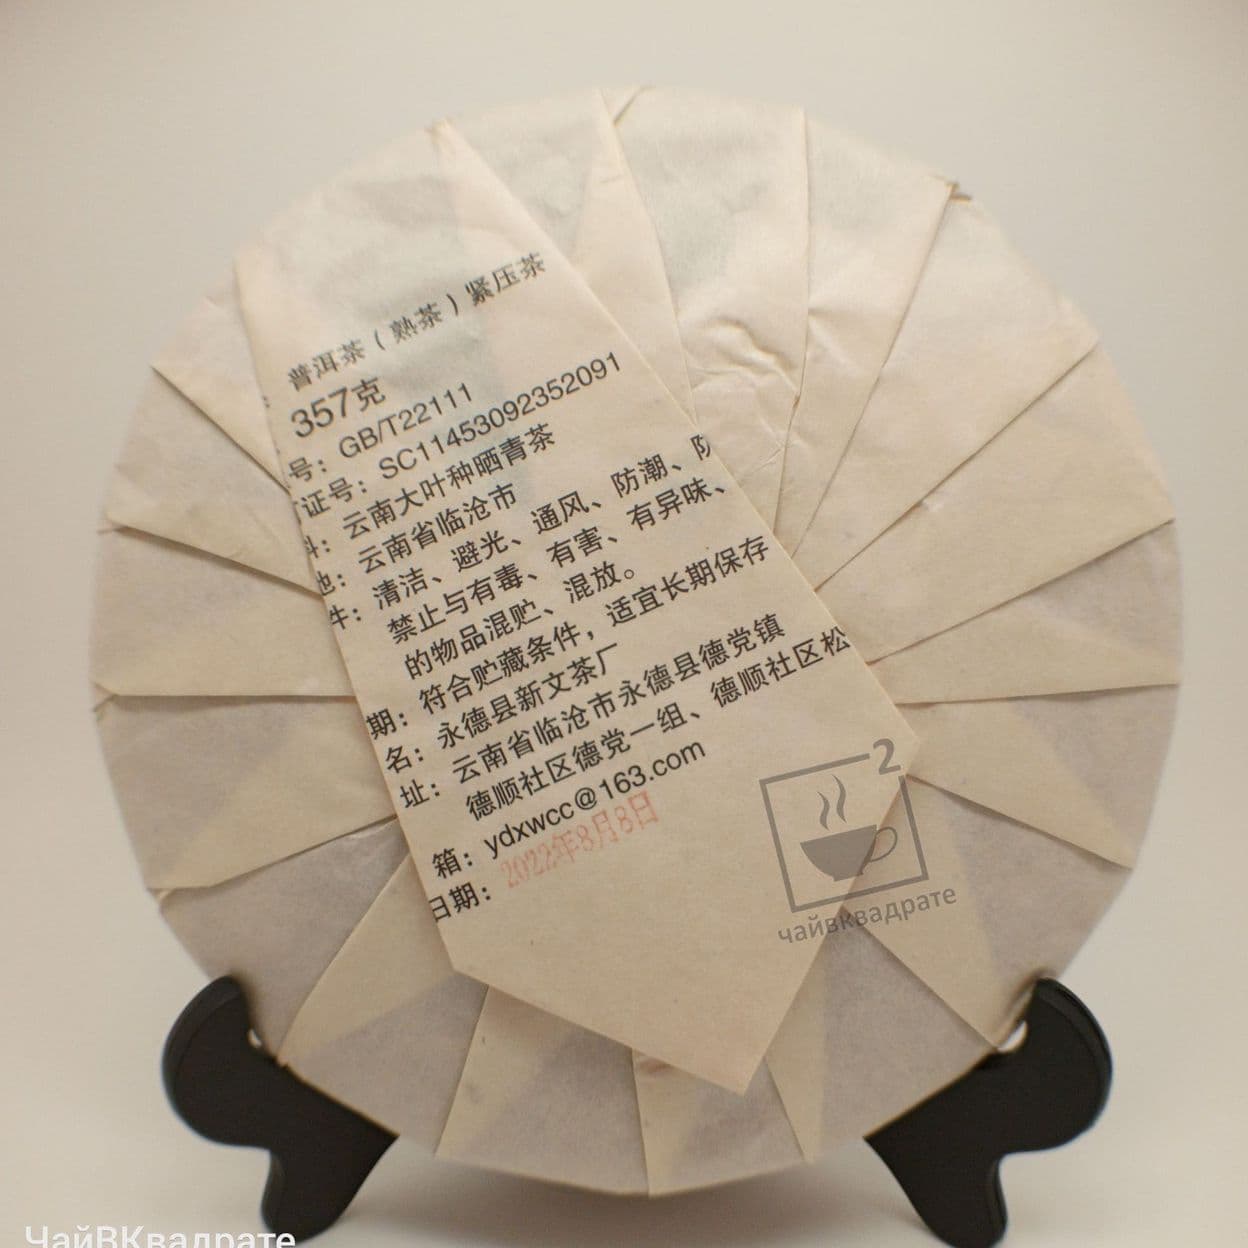 普洱茶（熟茶）紧压茶
357克
号：GB/T22111
证号：SC11453092352091
料：云南大叶种晒青茶
地：云南省临沧市
件：清洁、避光、通风、防潮、防
禁止与有毒、有害、有异味、
的物品混贮、混放。
期：符合贮藏条件，适宜长期保存
名：永德县新文茶厂
址：云南省临沧市永德县德党镇
德顺社区德党一组、德顺社区松
箱：ydxwcc@163.com
日期：2022年8月8日
2
чайвквадрате
ЧайВКвадрате